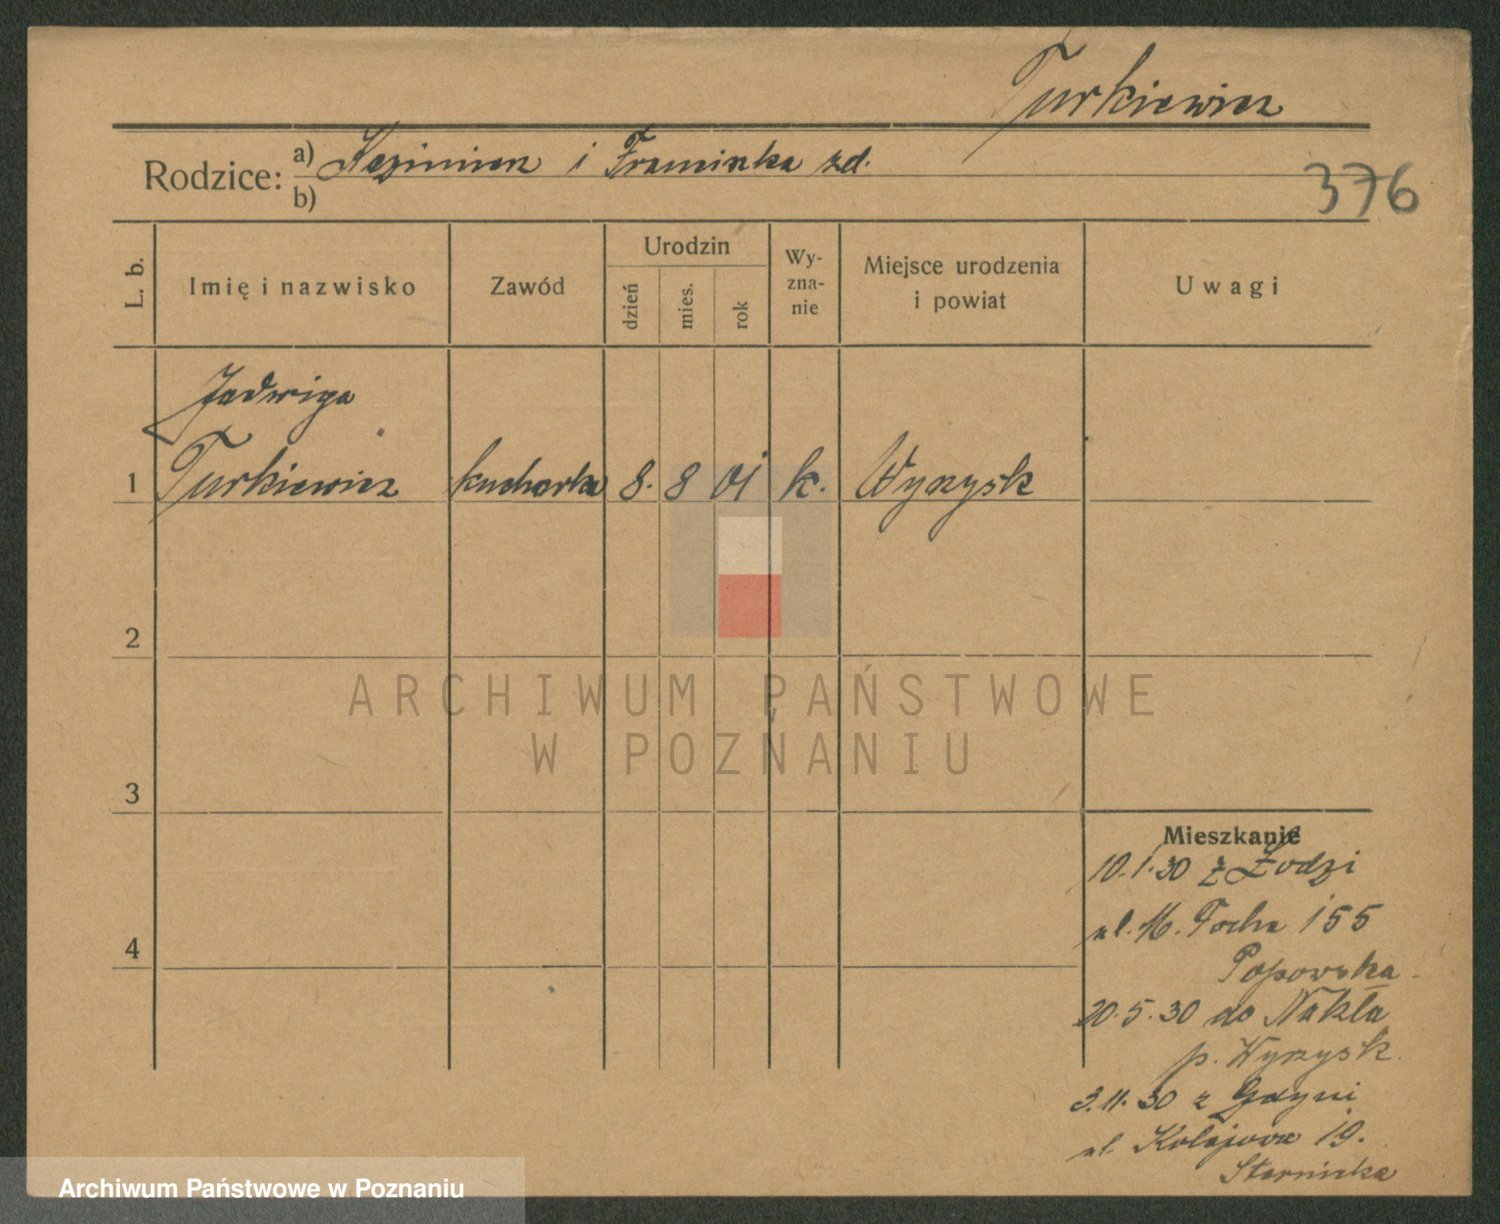 Turkiewicz
Rodzice: a) Kazimierz i Franciszka zd.
b)
376
L. b.
Imię i nazwisko
Zawód
Urodzin
dzień
mies.
rok
Wy-
zna-
nie
Miejsce urodzenia
i powiat
Uwagi
Jadwiga
1 Turkiewicz kucharka 8. 8 01 k. Wyrzysk
2
ARCHIWUM PAŃSTWOWE
W POZNANIU
3
Mieszkanie
10.1.30 z Łodzi
ul. M. Focha 155
Popowska
20.5.30 do Nakła
p. Wyrzysk.
3.11.30 z Gdyni
ul. Kolejowa 19.
4
Archiwum Państwowe w Poznaniu